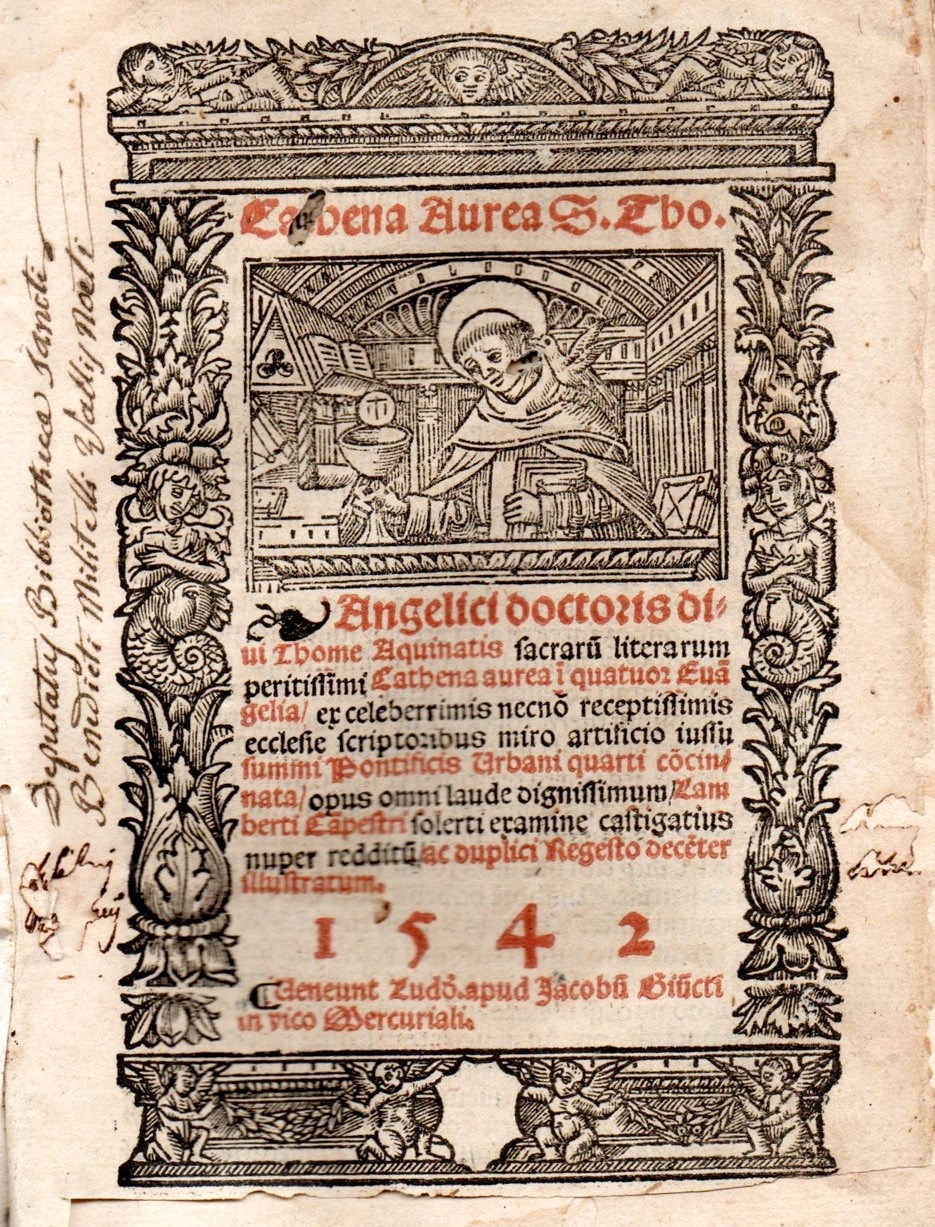 Cathena Aurea S. Tho.
Angelici doctoris di⸗
ui Thome Aquinatis sacrarū literarum
peritissimi Cathena aurea ī quatuor Euā
gelia/ ex celeberrimis necnō receptissimis
ecclesie scriptoribus miro artificio iussu
summi Pontificis Urbani quarti cōcin⸗
nata/ opus omni laude dignissimum/ Lam
berti Cāpestri solerti examine castigatius
nuper redditū/ ac duplici Regesto decēter
illustratum.
1542
Ueneunt Ludō. apud Jacobū Giūcti
in vico Mercuriali.
Deputatus Bibliothecæ sancti
Benedicti Militelli Vallis Noeti